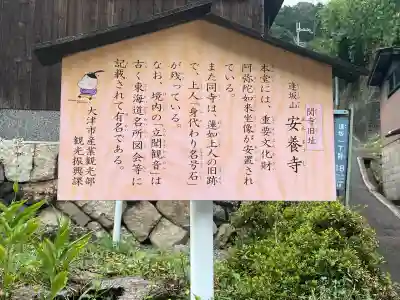 関寺旧址
逢坂山 安養寺
本堂には、重要文化財
阿弥陀如来坐像が安置され
ている。
また同寺は、蓮如上人の旧跡
で、上人「身代わり名号石」
が残っている。
なお、境内の「立聞観音」は
古く東海道名所図会等に
記載されて有名である。
大津市産業観光部
観光振興課
逢坂一丁目